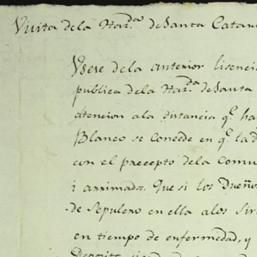 Visita dela Haz.da de Santa Catar
Vsese dela anterior licencia
publica dela Haz.da de Santa
atencion ala distancia q.e ha
Blanco se Concede en q.e la d
con el precepto dela Comu
i arrimada. Que si los Dueños
de Sepulcro en ella alos Sir
en tiempo de enfermedad, y